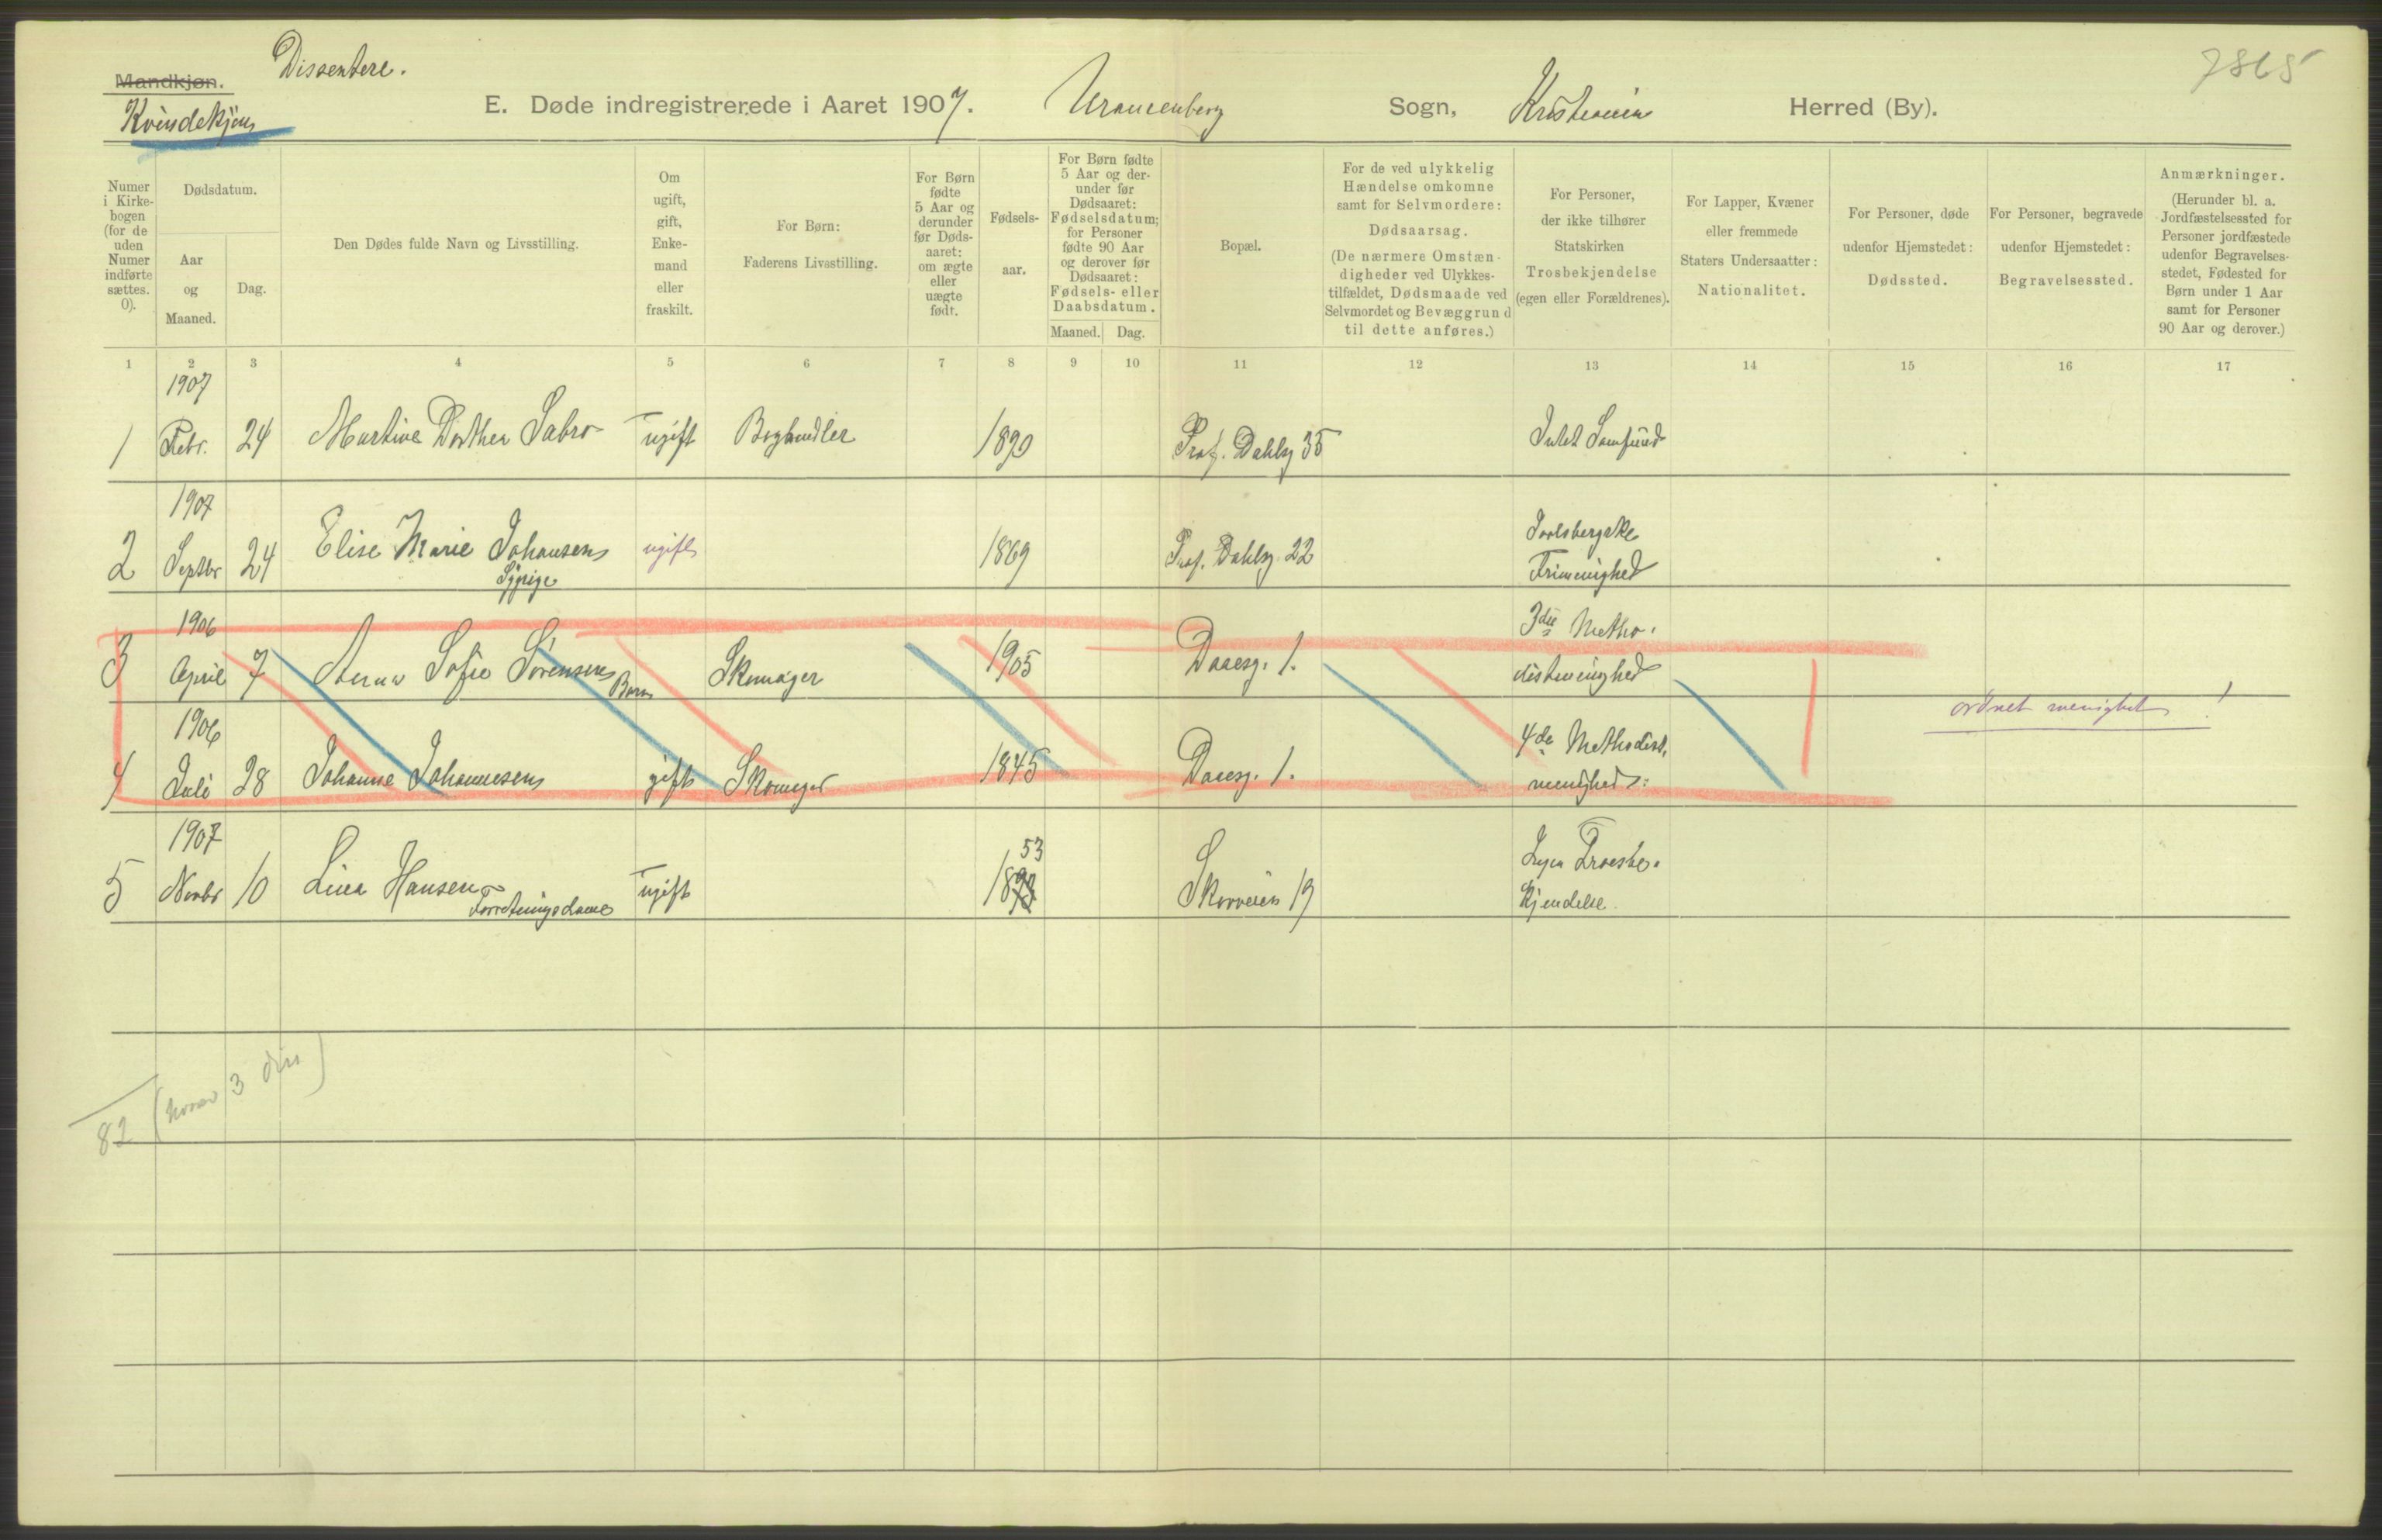 Mandkjøn.
Dissentere.
Kvindekjøn
E. Døde indregistrerede i Aaret 1907. Uranienborg Sogn, Kristiania Herred (By).
Numer i Kirke-bogen (for de uden Numer indførte sættes. 0).
Dødsdatum.
Aar og Maaned.
Dag.
Den Dødes fulde Navn og Livsstilling.
Om ugift, gift, Enke-mand eller fraskilt.
For Børn:
Faderens Livsstilling.
For Børn fødte 5 Aar og derunder før Døds-aaret: om ægte eller uægte født.
Fødsels-aar.
For Børn fødte 5 Aar og der-under før Dødsaaret: Fødselsdatum; for Personer fødte 90 Aar og derover før Dødsaaret: Fødsels- eller Daabsdatum.
Maaned. Dag.
Bopæl.
For de ved ulykkelig Hændelse omkomne samt for Selvmordere: Dødsaarsag.
(De nærmere Omstæn-digheder ved Ulykkes-tilfældet, Dødsmaade ved Selvmordet og Bevæggrund til dette anføres.)
For Personer, der ikke tilhører Statskirken
Trosbekjendelse
(egen eller Forældrenes).
For Lapper, Kvæner eller fremmede Staters Undersaatter:
Nationalitet.
For Personer, døde udenfor Hjemstedet:
Dødssted.
For Personer, begravede udenfor Hjemstedet:
Begravelsessted.
Anmærkninger.
(Herunder bl. a. Jordfæstelsessted for Personer jordfæstede udenfor Begravelses-stedet, Fødested for Børn under 1 Aar samt for Personer 90 Aar og derover.)
1 2 3 4 5 6 7 8 9 10 11 12 13 14 15 16 17
1907
1 Febr. 24 Martine Dorthea Sabro ugift Boghandler 1890 Prof. Dahlsg 35 Intet Samfund
1907
2 Septbr 24 Elise Marie Johansen ugift 1869 Prof. Dahlsg. 22 Jarlsbergske
Sypige Frimenighed
1906
3 April 7 Anna Sofie Sørensen Skomager 1905 Daaesg. 1. 3die Metho-
Barn distmenighed
ordnet menighet !
1906
4 Juli 28 Johanne Johannesen gift Skomager 1845 Daaesg. 1. 4de Methodist.
menighed:
1907
53
5 Novbr 10 Lina Hansen ugift 18 Skovveien 19 Ingen Troesbe-
Forretningsdame kjendelse.
82 (hvorav 3 diss)